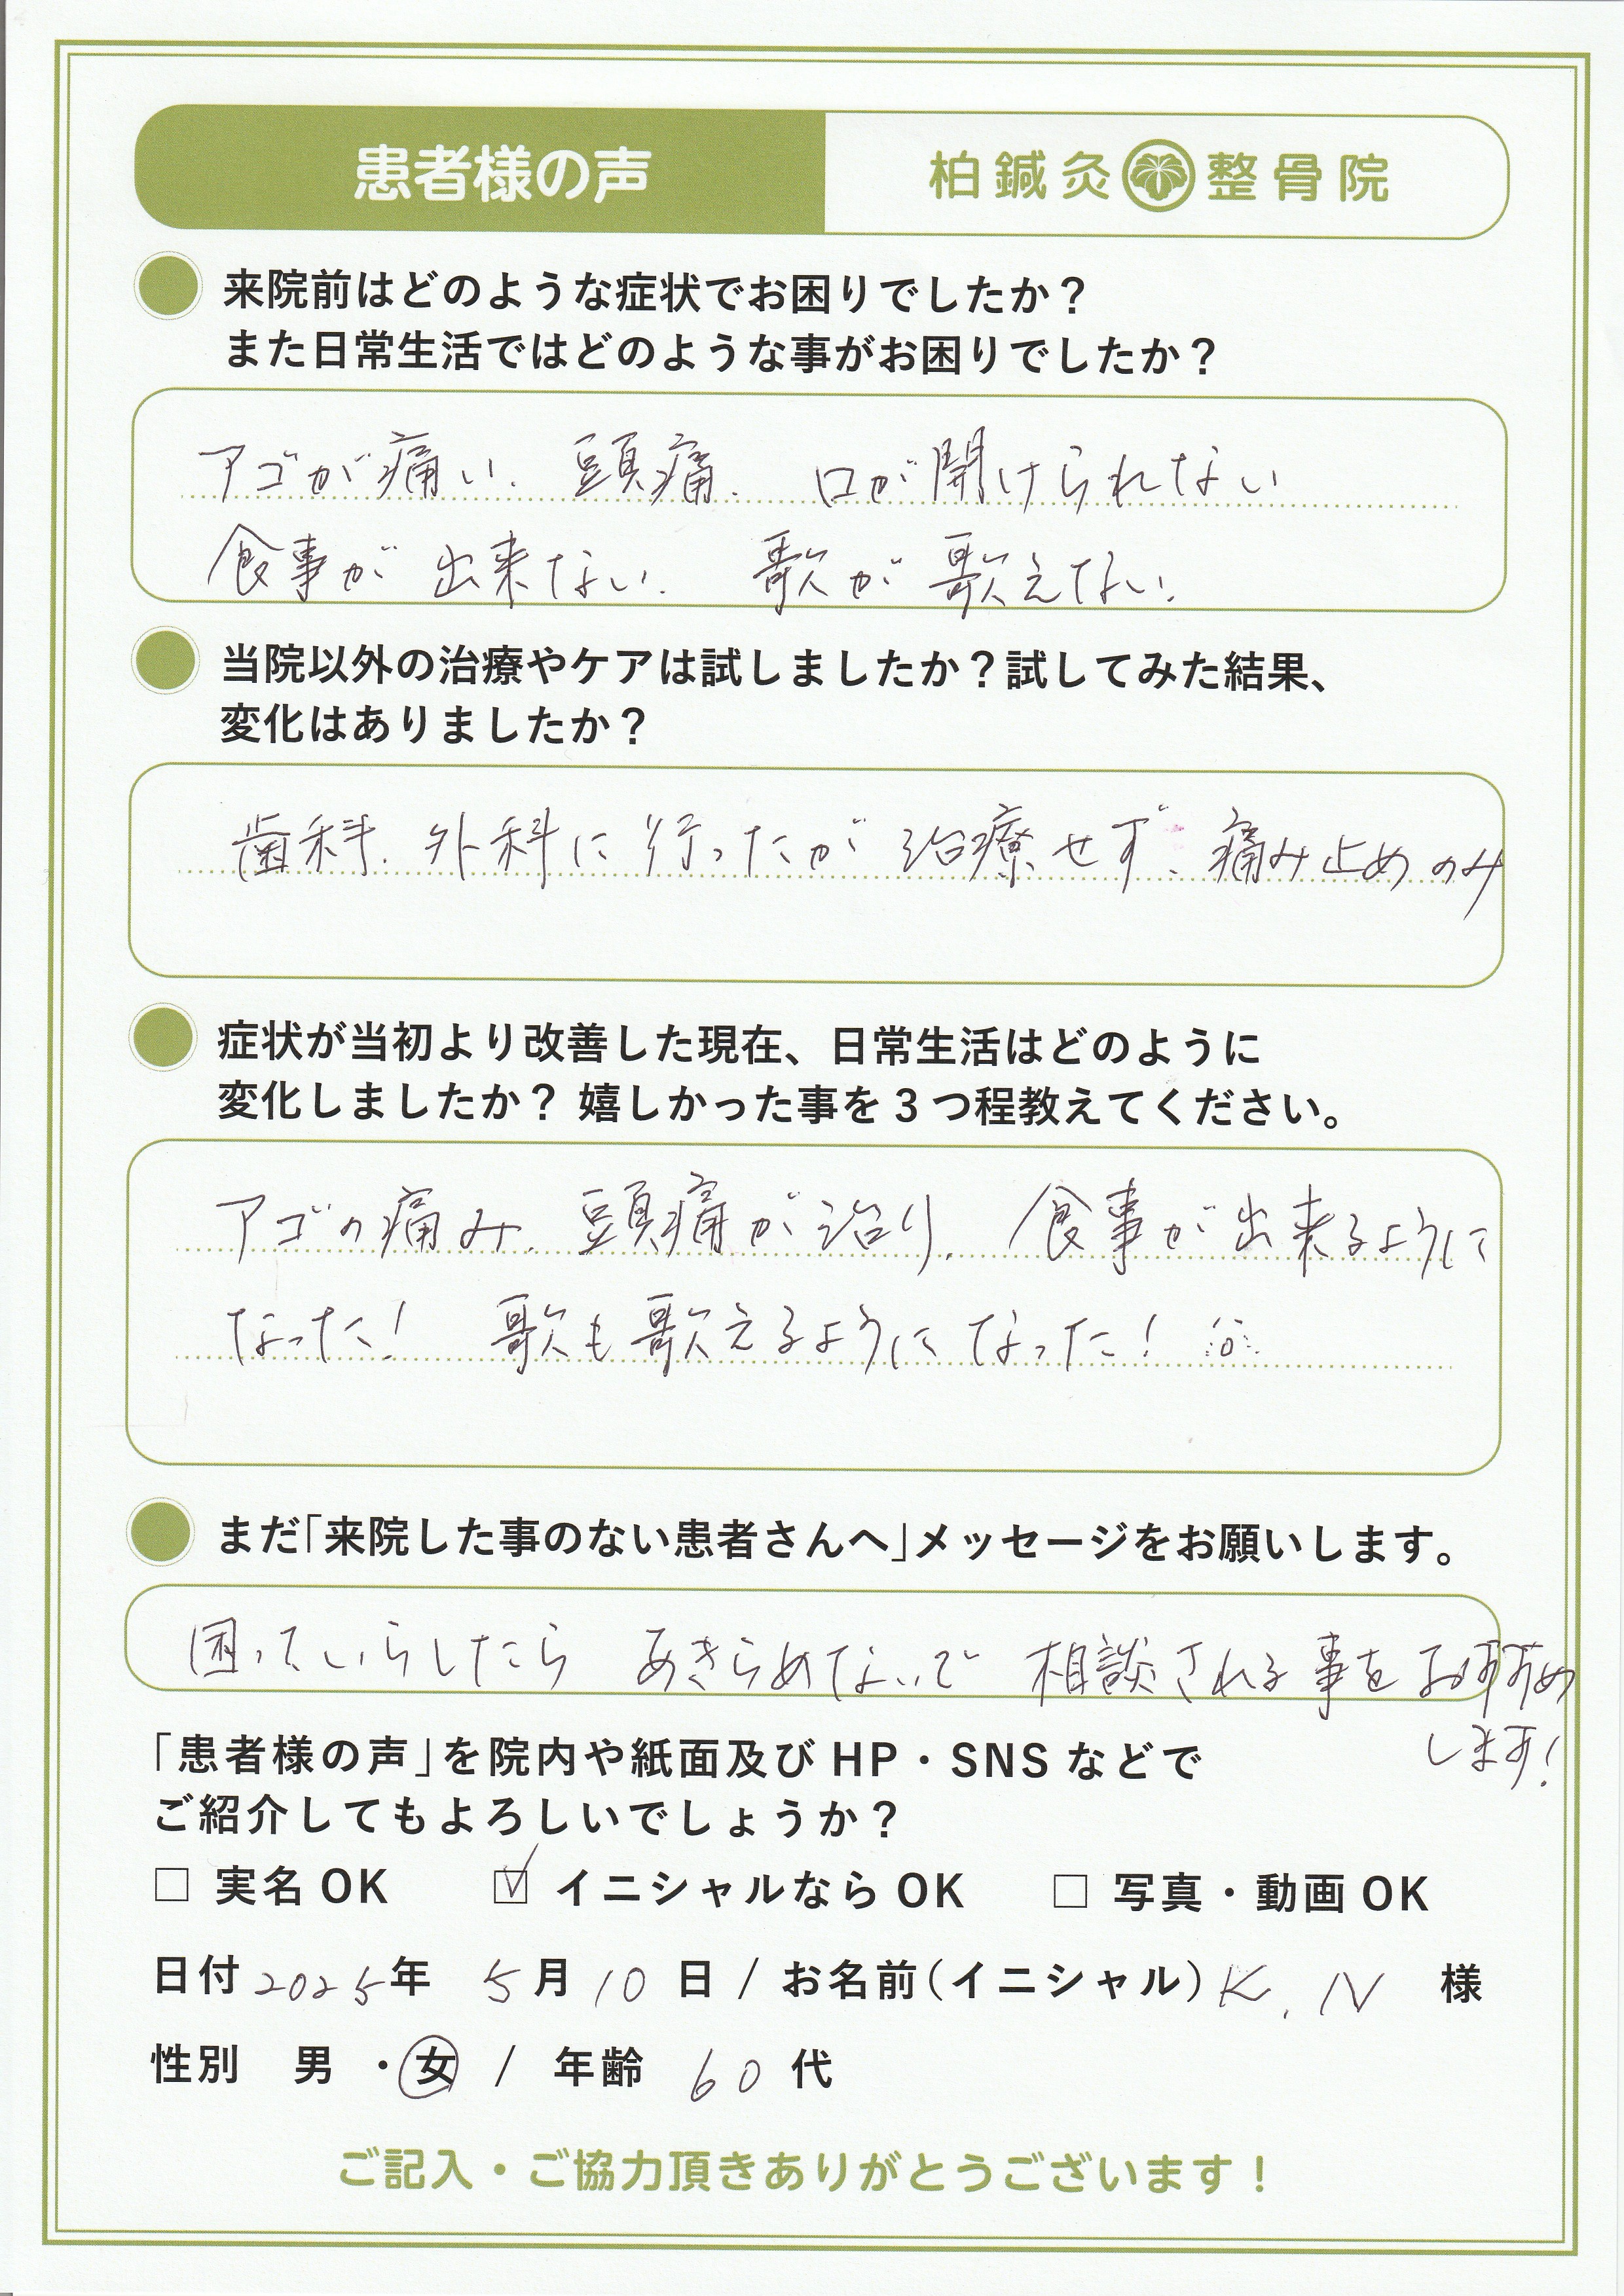 患者様の声
柏鍼灸整骨院
来院前はどのような症状でお困りでしたか？
また日常生活ではどのような事がお困りでしたか？
アゴが痛い、頭痛、口が開けられない
食事が出来ない、歌が歌えない、
当院以外の治療やケアは試しましたか？試してみた結果、
変化はありましたか？
歯科、外科に行ったが治療せず、痛み止めのみ
症状が当初より改善した現在、日常生活はどのように
変化しましたか？ 嬉しかった事を3つ程教えてください。
アゴの痛み、頭痛が治り、食事が出来るように
なった！ 歌も歌えるようになった！
まだ「来院した事のない患者さんへ」メッセージをお願いします。
困っていらしたら あきらめないで 相談される事をおすすめ
します！
「患者様の声」を院内や紙面及びHP・SNSなどで
ご紹介してもよろしいでしょうか？
□ 実名OK ☑ イニシャルならOK □ 写真・動画OK
日付 2025年 5月10日 / お名前（イニシャル）K.N 様
性別 男・女 / 年齢 60代
ご記入・ご協力頂きありがとうございます！